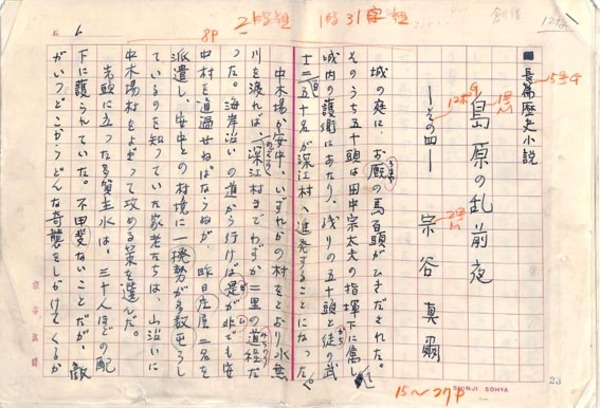 2段組 1段31字組
8P
創作
■長篇歴史小説
15号G
島原の乱前夜
―その四―
宗谷真爾
城の庭に、お厩の馬百頭がひきだされた。
そのうち五十頭は田中宗太夫の指揮下に属し、
城内の護衛にあたり、残りの五十頭と徒の武
士二百五十名が深江村へ進発することになった。
中木場か安中、いずれかの村をとおり水無
川を渡れば、深江村までわずか二里の道程だ
った。海岸沿いの道から行けば是が非でも安
中村を通過せねばならぬが、昨日庄屋二名を
派遣し、安中との村境に一揆勢が多数屯ろし
ているのを知っていた家老たちは、山沿いに
中木場村をよぎって攻める策を選んだ。
先頭に立った多賀主水は、三十人ほどの配
下に護られていた。不甲斐ないことだが、敵
がいつどこからどんな奇襲をしかけてくるか
15〜27P
SHINJI SOHYA
23
宗谷真爾